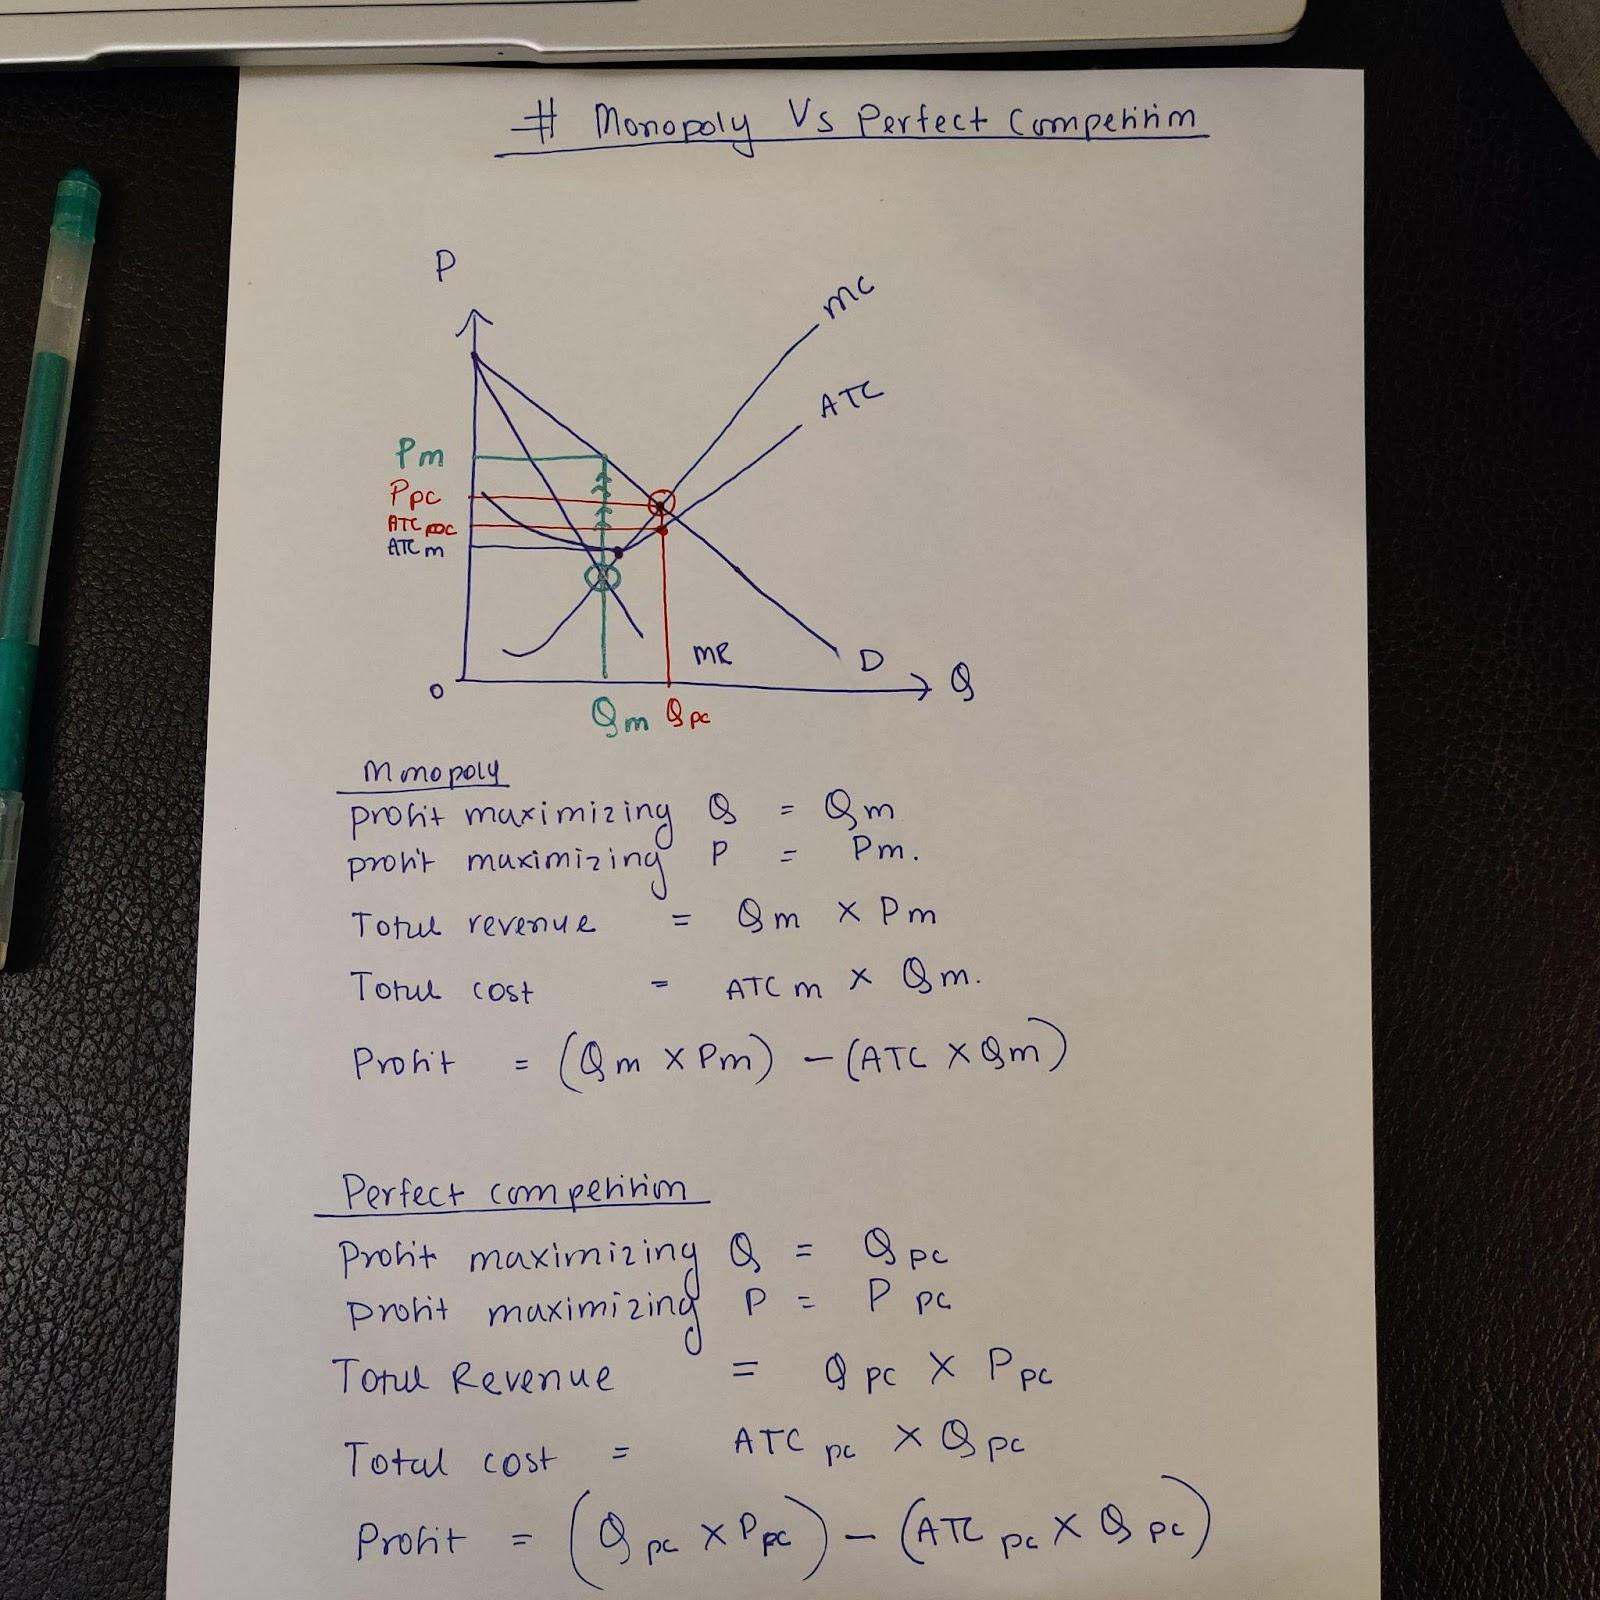 # Monopoly Vs Perfect Competition
P
MC
ATC
Pm
Ppc
ATC pc
ATC m
MR
D
O
Q
Qm Qpc
Monopoly
profit maximizing Q = Qm
profit maximizing P = Pm.
Total revenue = Qm x Pm
Total cost = ATC m x Qm.
Profit = (Qm x Pm) - (ATC x Qm)
Perfect competition
Profit maximizing Q = Q pc
profit maximizing P = P pc
Total Revenue = Q pc x P pc
Total cost = ATC pc x Q pc
Profit = (Q pc x P pc) - (ATC pc x Q pc)